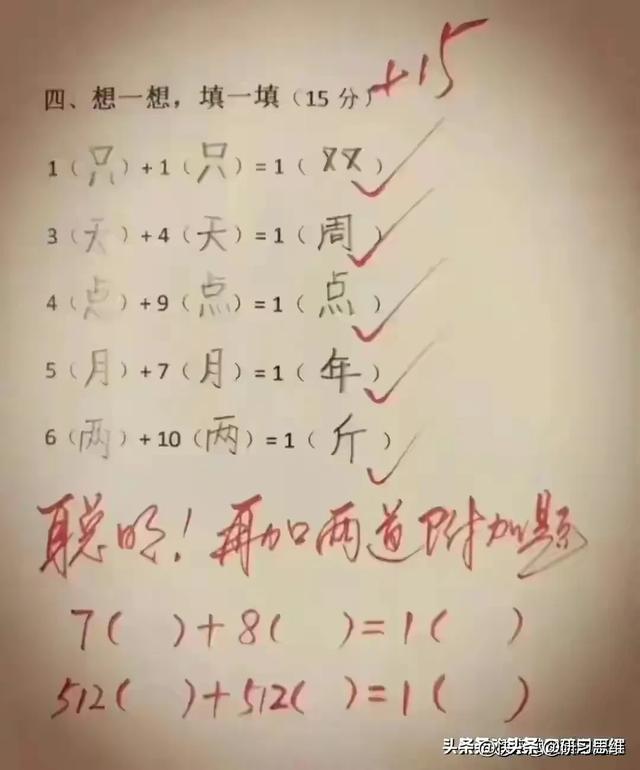 四、想一想，填一填（15 分） +15
1（只）+1（只）=1（双）
3（天）+4（天）=1（周）
4（点）+9（点）=1（点）
5（月）+7（月）=1（年）
6（两）+10（两）=1（斤）
聪明！再加两道附加题
7（ ）+8（ ）=1（ ）
512（ ）+512（ ）=1（ ）
头条 头条 @研习思维